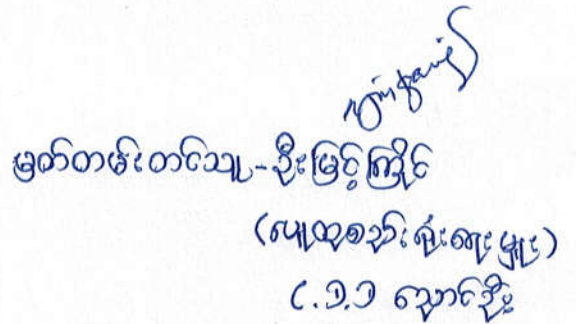 မှတ်တမ်းတင်သူ - ဦးမြင့်ကြိုင်
(လူထုစည်းရုံးရေးမှူး)
၎.၁.၁ ညောင်ဦး